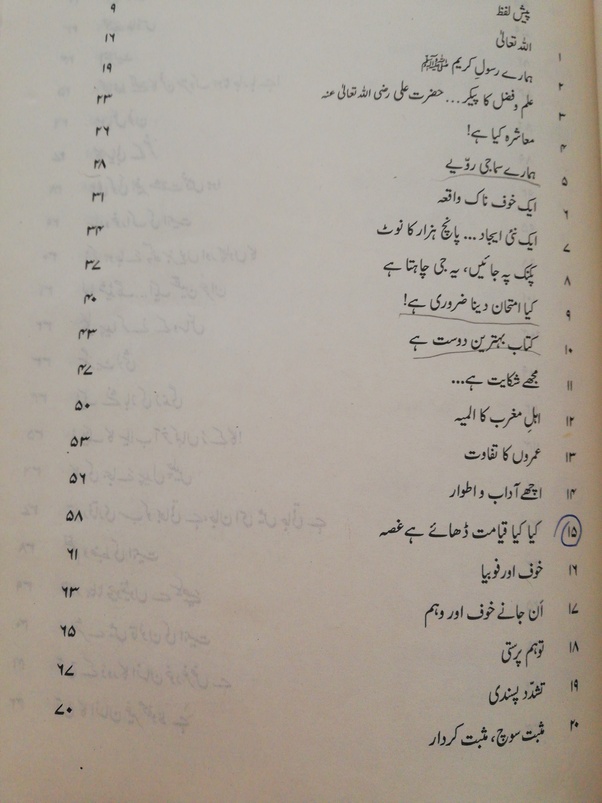 پیش لفظ ۹
۱ اللہ تعالیٰ ۱۶
۲ ہمارے رسولِ کریم ﷺ ۱۹
۳ علم و فضل کا پیکر... حضرت علی رضی اللہ تعالیٰ عنہ ۲۳
۴ معاشرہ کیا ہے! ۲۶
۵ ہمارے سماجی روّیے ۲۸
۶ ایک خوف ناک واقعہ ۳۱
۷ ایک نئی ایجاد... پانچ ہزار کا نوٹ ۳۴
۸ پکنک پہ جائیں، یہ جی چاہتا ہے ۳۷
۹ کیا امتحان دینا ضروری ہے! ۴۰
۱۰ کتاب بہترین دوست ہے ۴۳
۱۱ مجھے شکایت ہے... ۴۷
۱۲ اہلِ مغرب کا المیہ ۵۰
۱۳ عمروں کا تفاوت ۵۳
۱۴ اچھے آداب و اطوار ۵۶
۱۵ کیا کیا قیامت ڈھائے ہے غصہ ۵۸
۱۶ خوف اور فوبیا ۶۱
۱۷ اَن جانے خوف اور وہم ۶۳
۱۸ توہم پرستی ۶۵
۱۹ تشدّد پسندی ۶۷
۲۰ مثبت سوچ، مثبت کردار ۷۰